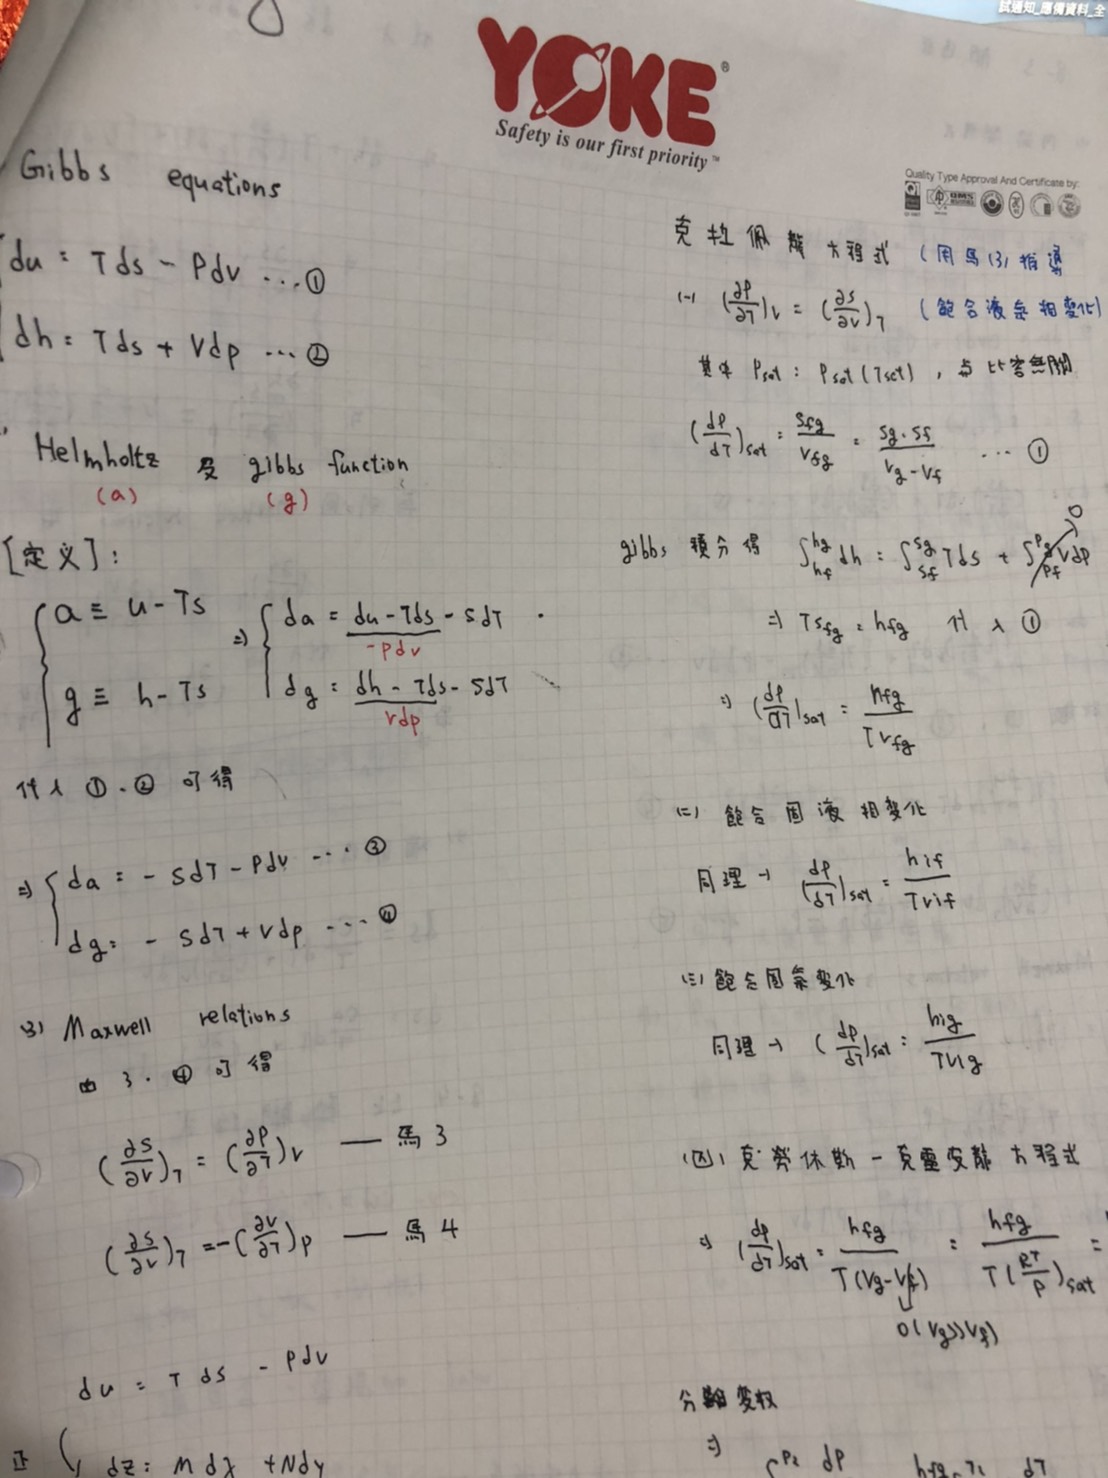 試通知_應備資料_全
YOKE®
Safety is our first priority™
Quality Type Approval And Certificate by:
Gibbs equations
du = Tds - Pdv ...①
dh = Tds + Vdp ...②
Helmholtz 及 gibbs function
(a) (g)
[定义]:
a ≡ u - Ts ⇒ da = du - Tds - SdT
-Pdv
g ≡ h - Ts dg = dh - Tds - SdT
vdp
代入 ①、② 可得
⇒ da = - SdT - Pdv ... ③
dg = - SdT + Vdp ... ④
3) Maxwell relations
由 3、④ 可得
(∂S/∂V)T = (∂P/∂T)V — 馬 3
(∂S/∂V)T = -(∂V/∂T)P — 馬 4
du = T ds - Pdv
正 dz = M dx + Ndy
克拉佩龍方程式 (用馬(3)推導
(一) (∂P/∂T)V = (∂S/∂V)T (飽合液氣相變化)
其中 Psat = Psat(Tsat), 与比容無關
(dP/dT)sat = Sfg/Vfg = Sg-Sf/Vg-Vf ... ①
gibbs 積分得 ∫hf^hg dh = ∫Sf^Sg Tds + ∫Pf^Pg Vdp 0
⇒ TSfg = hfg 代入 ①
⇒ (dP/dT)sat = hfg/TVfg
(二) 飽合固液相變化
同理→ (dP/dT)sat = hif/Tvif
(三) 飽合固氣變化
同理→ (dP/dT)sat = hig/TVig
(四) 克勞休斯-克雷安龍方程式
⇒ (dP/dT)sat = hfg/T(Vg-Vf) = hfg/T(RT/P)sat =
0(Vg>>Vf)
分離變數
⇒ dP hfg dT